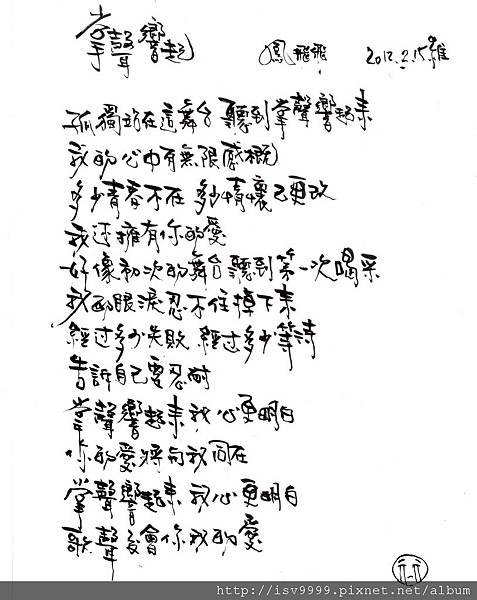 掌聲響起 鳳飛飛 2012.2.15 雅
孤獨站在這舞台 聽到掌聲響起來
我的心中有無限感概
多少青春不在 多少情懷已更改
我还擁有你的愛
好像初次的舞台 聽到第一次喝采
我的眼淚忍不住掉下來
經过多少失敗 經过多少等待
告訴自己要忍耐
掌聲響起來 我心更明白
你的愛將与我同在
掌聲響起來 我心更明白
歌聲交會你我的愛
http://isv9999.pixnet.net/album